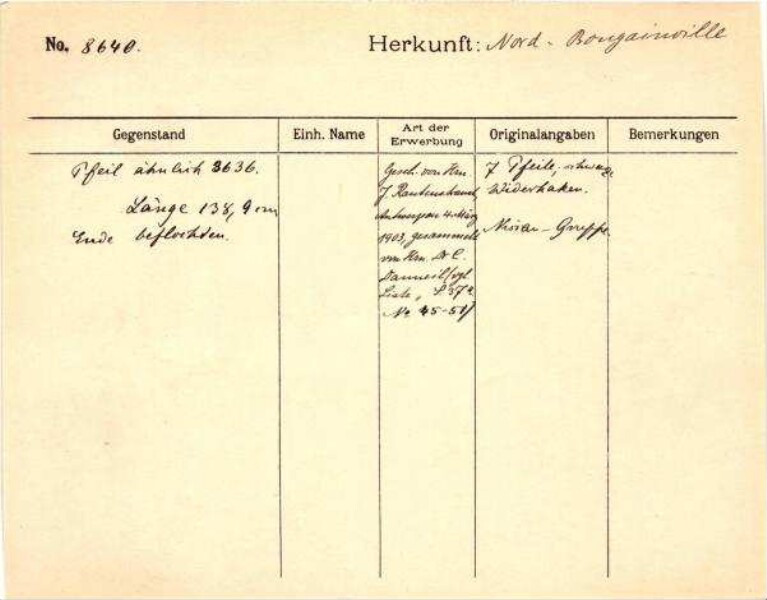 No. 8640.
Herkunft: Nord-Bougainville
Gegenstand
Einh. Name
Art der Erwerbung
Originalangaben
Bemerkungen
Pfeil ähnlich 3636.
Länge 138,9 cm
Ende beflochten.
Gesch. von Hrn.
J. Rautenstrauch,
Antwerpen 4. März
1903, gesammelt
von Hrn. Dr C.
Danneil (vgl.
Liste, S. 37
No 45-51)
7 Pfeile, schwarze
Widerhaken.
Nissan-Gruppe.